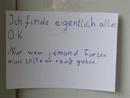 Ich finde eigentlich alles
O.K
Nur wenn jemand Furzen
muss sollte er rauß gehen.